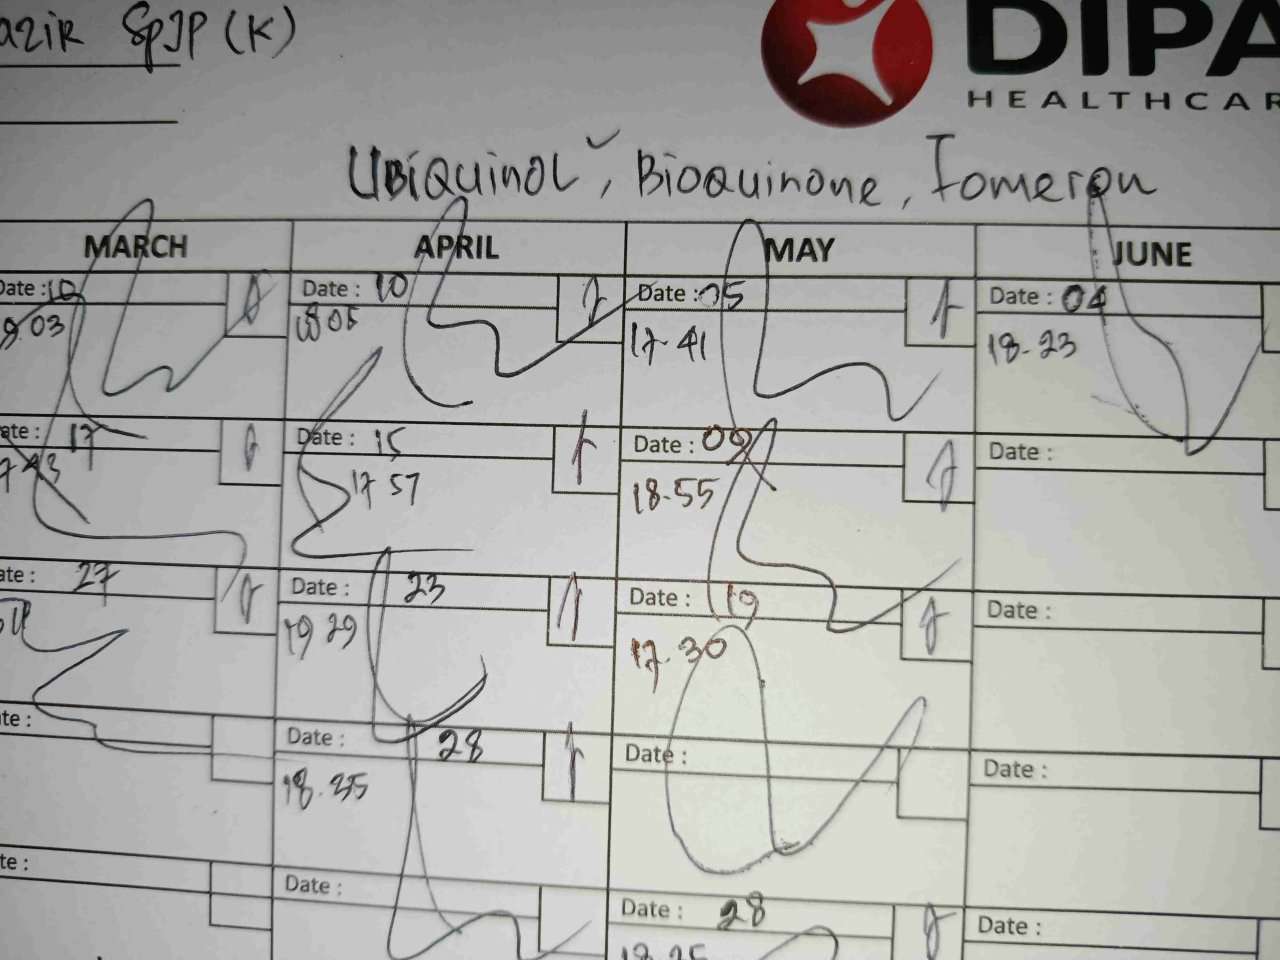 SpJP (K)
DIPA
HEALTHCAR
Ubiquinol, Bioquinone, Fomeron
MARCH APRIL MAY JUNE
Date : 10 Date : 10 Date : 05 Date : 04
03 18 05 17-41 18-23
ate : 17 Date : 15 Date : 09 Date :
17 57 18-55
ate : 27 Date : 23 Date : 19 Date :
19 29 17.30
te : Date : 28 Date : Date :
18.25
te : Date : Date : 28 Date :
18.25